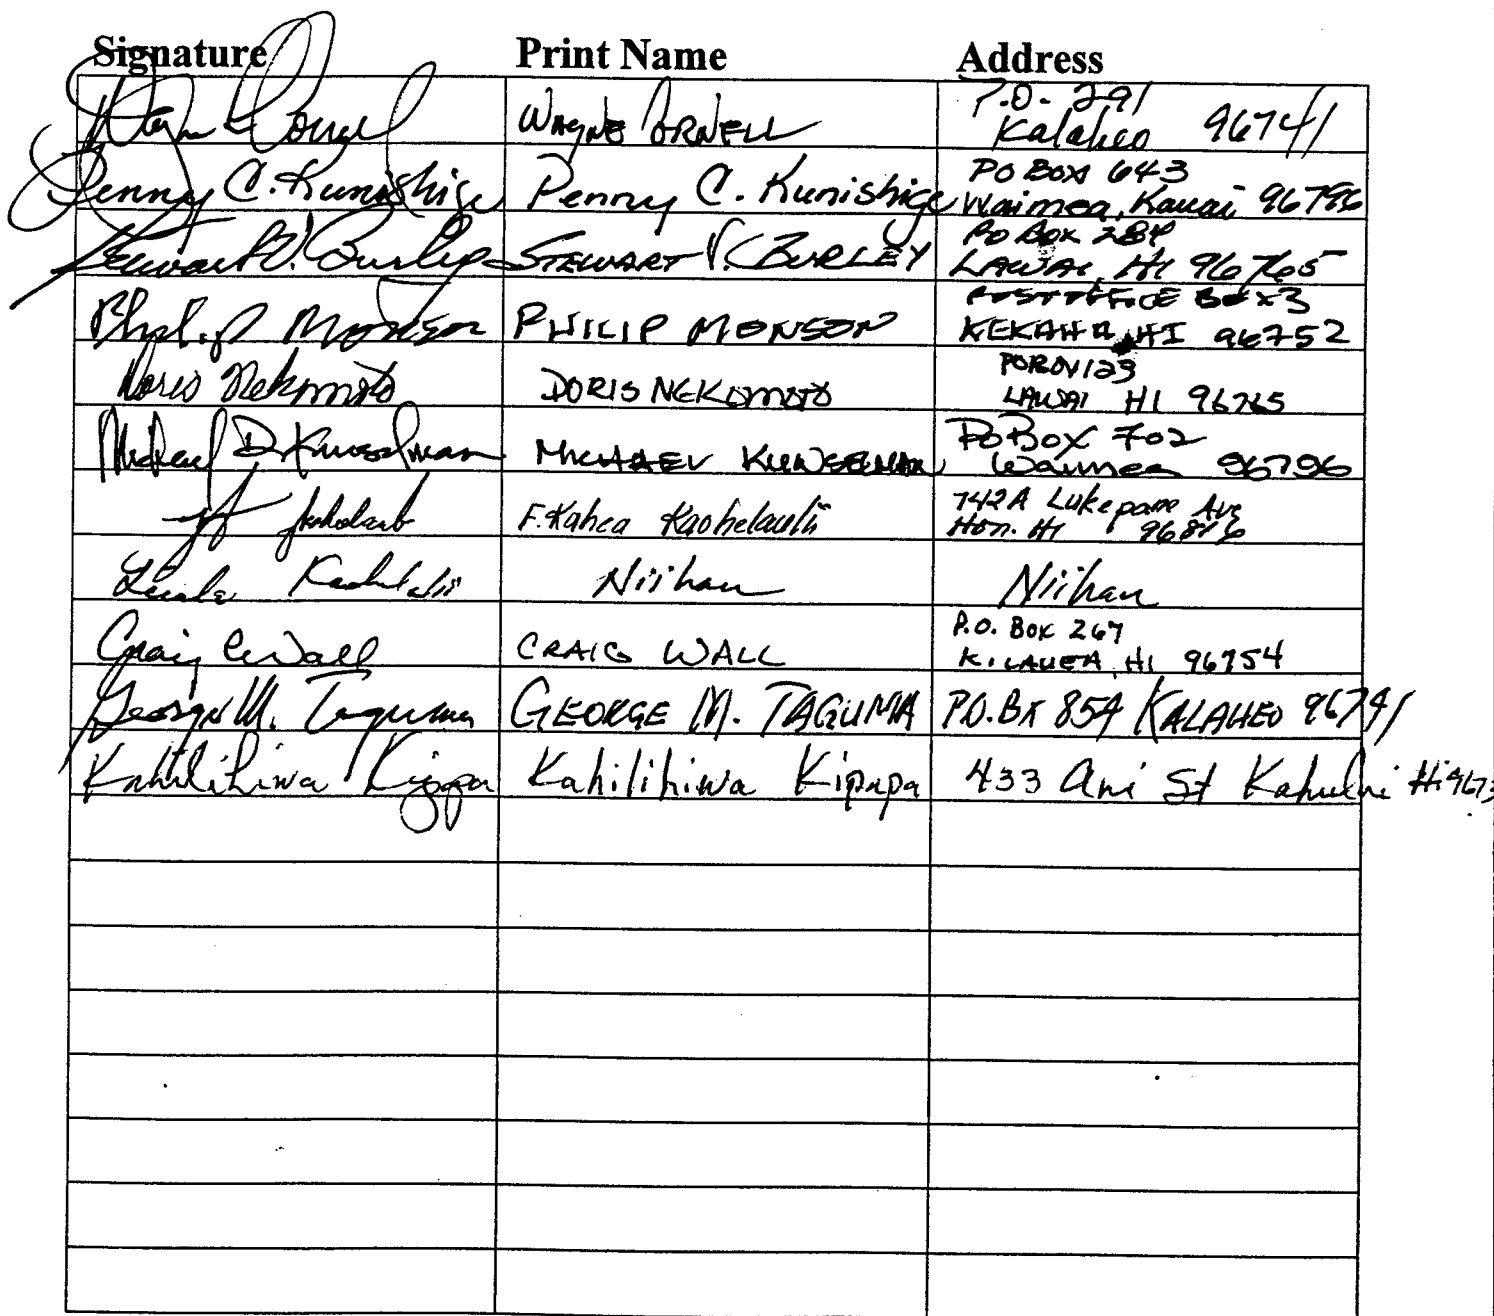 Signature Print Name Address
WAYNE P.O. 291
Kalaheo 96741
Penny C. Kunishige Penny C. Kunishige PO BOX 643
Waimea, Kauai 96796
Stewart V. Burley STEWART V. BURLEY PO BOX 284
LAWAI, HI 96765
Philip Monson PHILIP MONSON POST OFFICE BOX 3
KEKAHA HI 96752
Doris Nekomoto DORIS NEKOMOTO 123
LAWAI HI 96765
Michael D. Kunselman MICHAEL KUNSELMAN PO BOX 702
Waimea 96796
F. Kahea Kaohelaulii 742A Lukepane Ave
Hon. HI
Niihau Niihau
Craig Wall CRAIG WALL P.O. Box 267
KILAUEA, HI 96754
George M. Taguma GEORGE M. TAGUMA P.O. BX 854 KALAHEO 96741
Kahilihiwa Kipapa Kahilihiwa Kipapa 433 Ani St Kahului Hi 9673